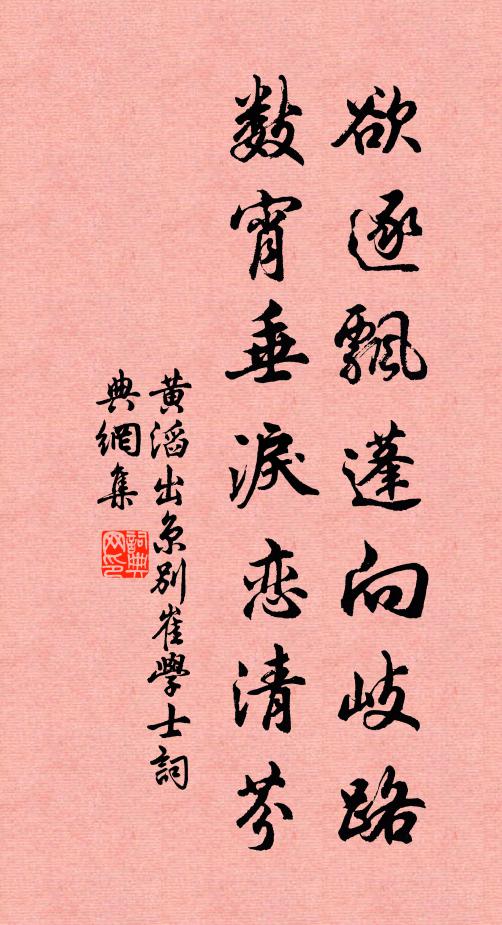 欲逐飄蓬向岐路
數宵垂淚恋清芬
黄滔出京别崔學士詞
典網集
詞典
网印